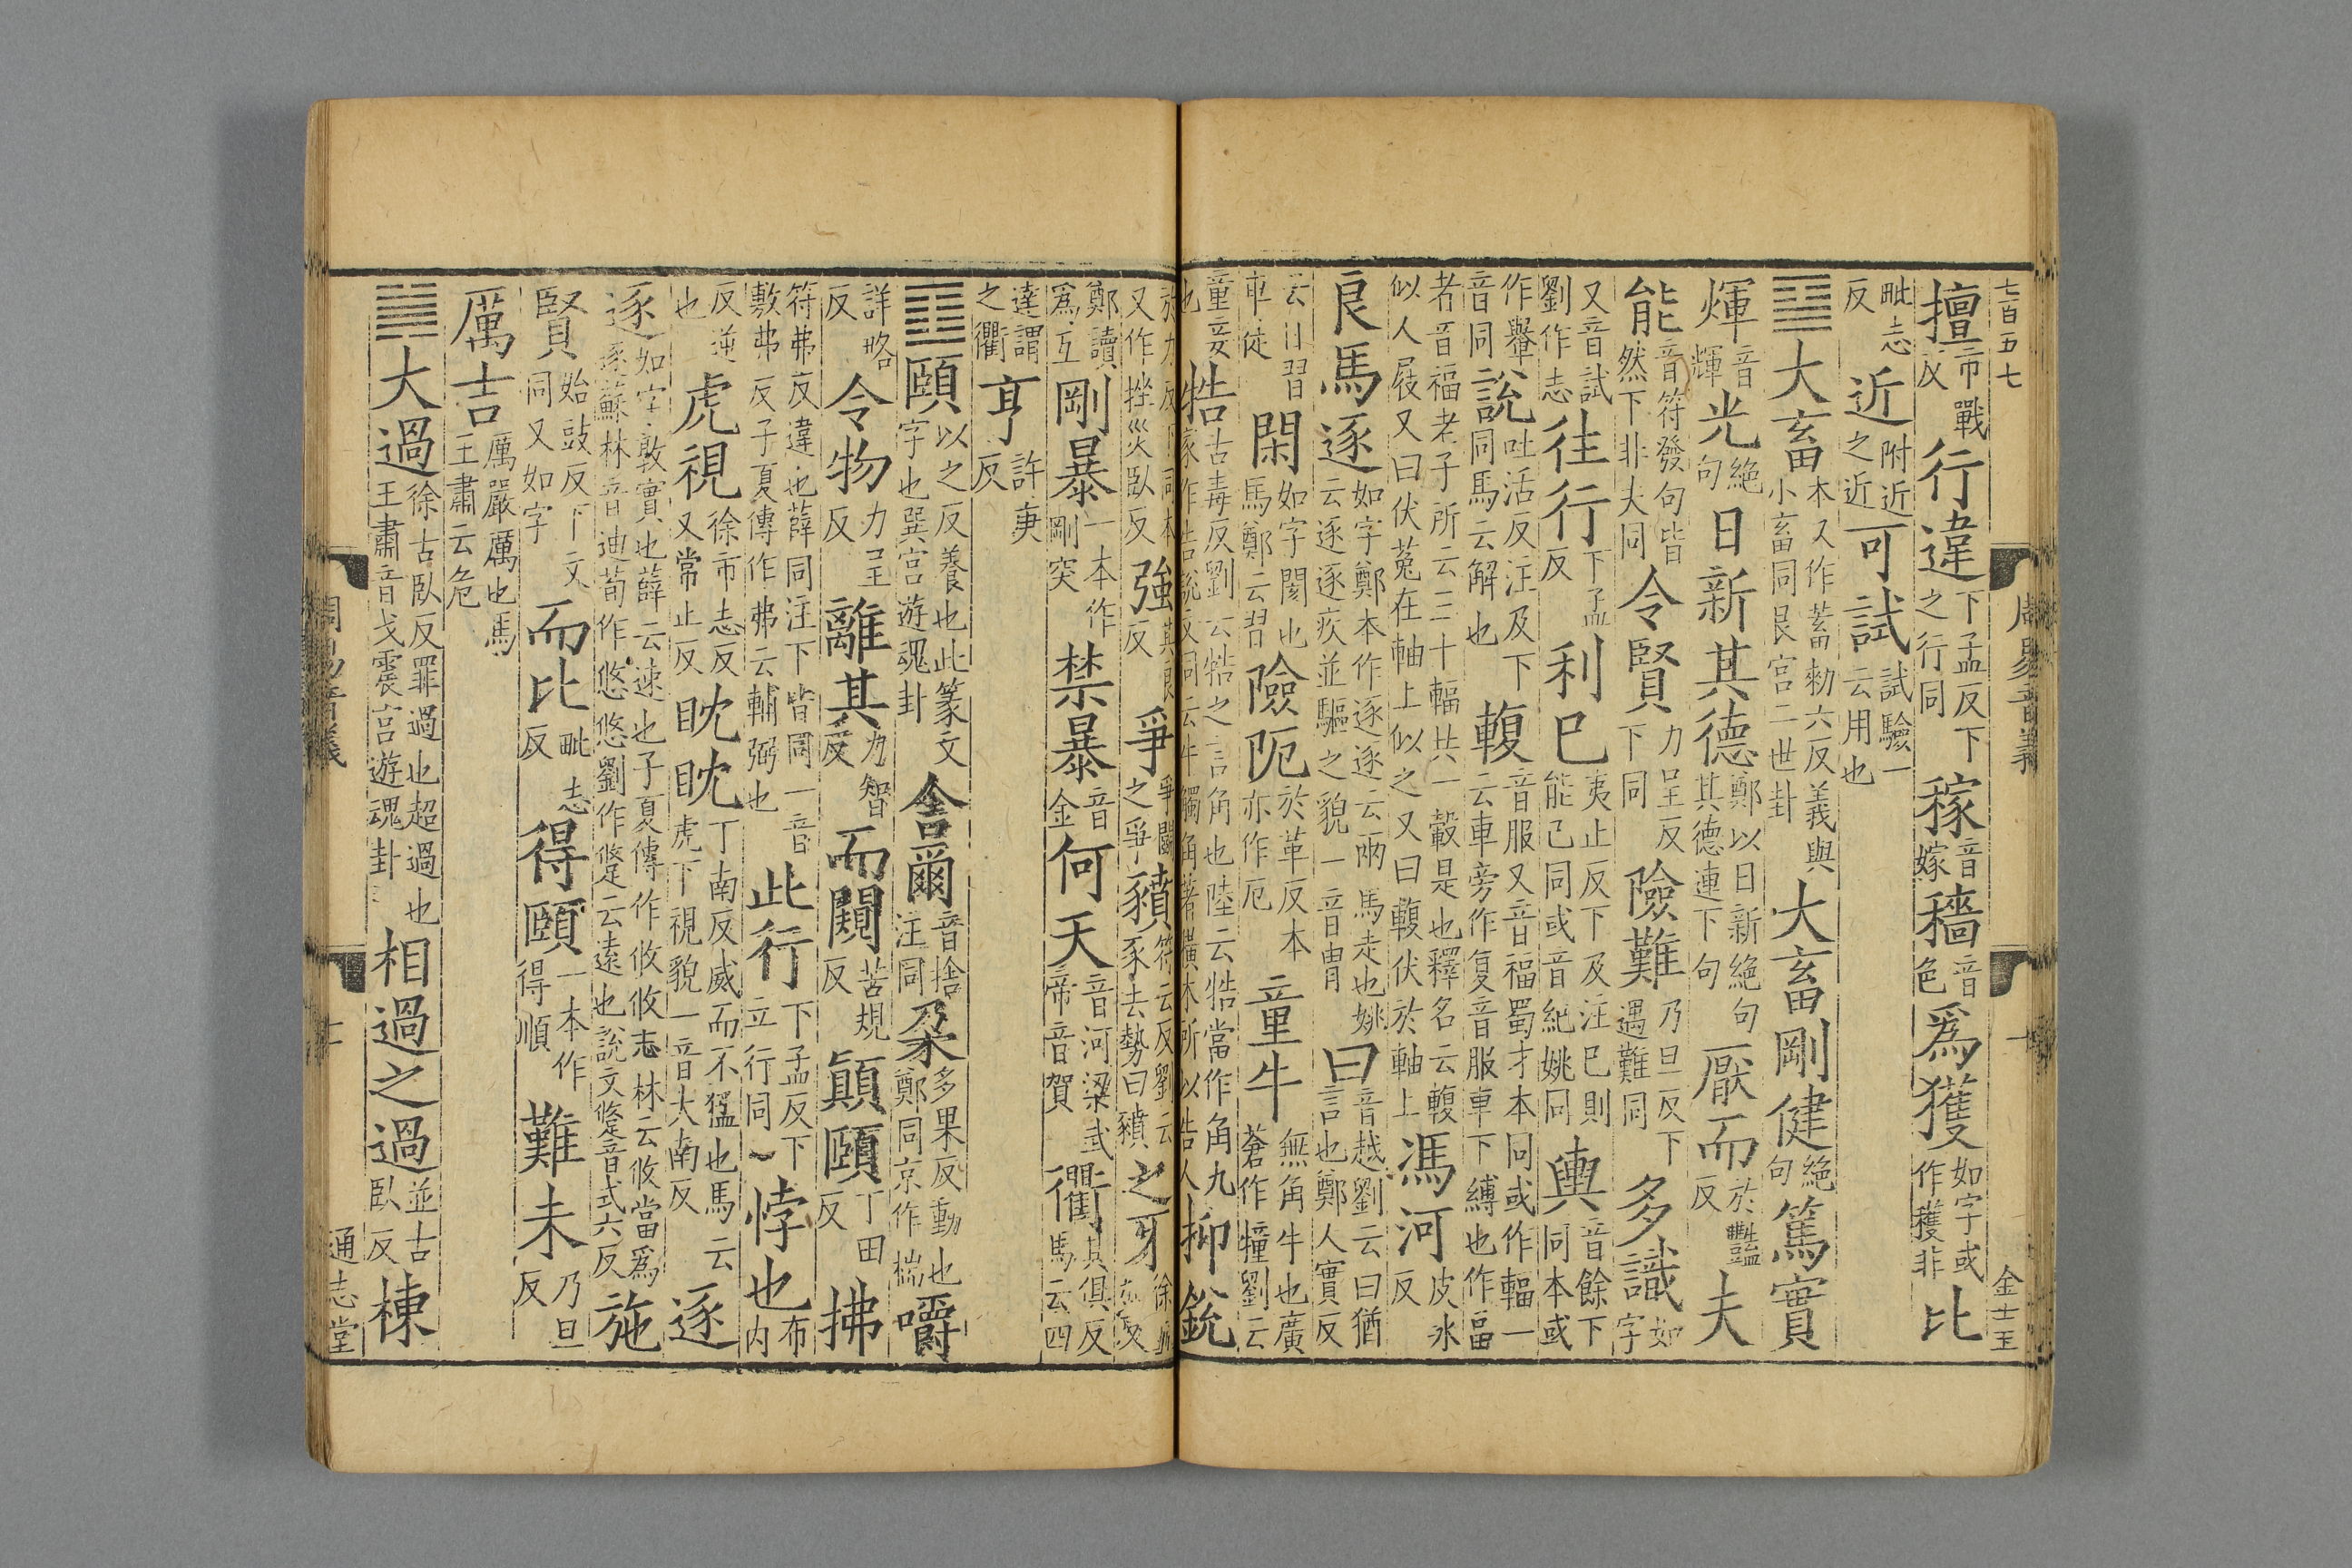 七百五七
擅市戰反行違下孟反下之行同稼音嫁穡音色爲獲如字或作穫非比
毗志反近附近之近可試試驗一云用也
䷙大畜本又作蓄勑六反義與小畜同艮宮二世卦大畜剛健絶句篤實
煇音輝光絶句日新其德鄭以日新絶句其德連下句厭而於豔反夫
能音符發句皆然下非夫同令賢力呈反下同險難乃旦反下遇難同多識如字
又音試劉作志往行下孟反利已夷止反下及注已則能已同或音紀姚同輿音餘下同本或
作轝音同說吐活反注及下同馬云解也輹音服又音福蜀才本同或作輻一云車旁作复音服車下縛也作畐
者音福老子所云三十輻共一轂是也釋名云輹似人屐又曰伏菟在軸上似之又曰輹伏於軸上馮河皮冰反
良馬逐如字鄭本作逐逐云兩馬走也姚云逐逐疾並驅之貌一音胄曰音越劉云曰猶言也鄭人實反
云日習車徒閑如字閡也馬鄭云習險阨於革反本亦作厄童牛無角牛也廣蒼作犝劉云
童妾也牿古毒反劉云牿之言角也陸云牿當作角九家作告說文同云牛觸角著橫木所以告人抑銳
又作挫災臥反強其良反爭爭鬭之爭豶符云反劉云豕去勢曰豶之牙徐
鄭讀爲互剛暴一本作剛突禁暴音金何天音河梁武帝音賀衢其俱反馬云四
達謂之衢亨許庚反
䷚頤以之反養也此篆文字也巽宮遊魂卦舍爾音捨注同朶多果反動也鄭同京作椯嚼
詳略反令物力呈反離其力智反而闚苦規反顚頤丁田反拂
符弗反違也薛同注下皆同一音敷弗反子夏傳作弗云輔弼也此行下孟反下立行同悖也布內
反逆也虎視徐市志反又常止反眈眈丁南反威而不猛也馬云虎下視貌一音大南反逐
逐如字敦實也薛云速也子夏傳作攸攸志林云攸當爲逐蘇林音迪荀作悠悠劉作跾云遠也說文跾音式六反施
賢始豉反下文同又如字而比毗志反得頤一本作得順難未乃旦反
厲吉厲嚴厲也馬王肅云危
䷛大過徐古臥反罪過也超過也王肅音戈震宮遊魂卦相過之過並古臥反棟
周易音義
通志堂